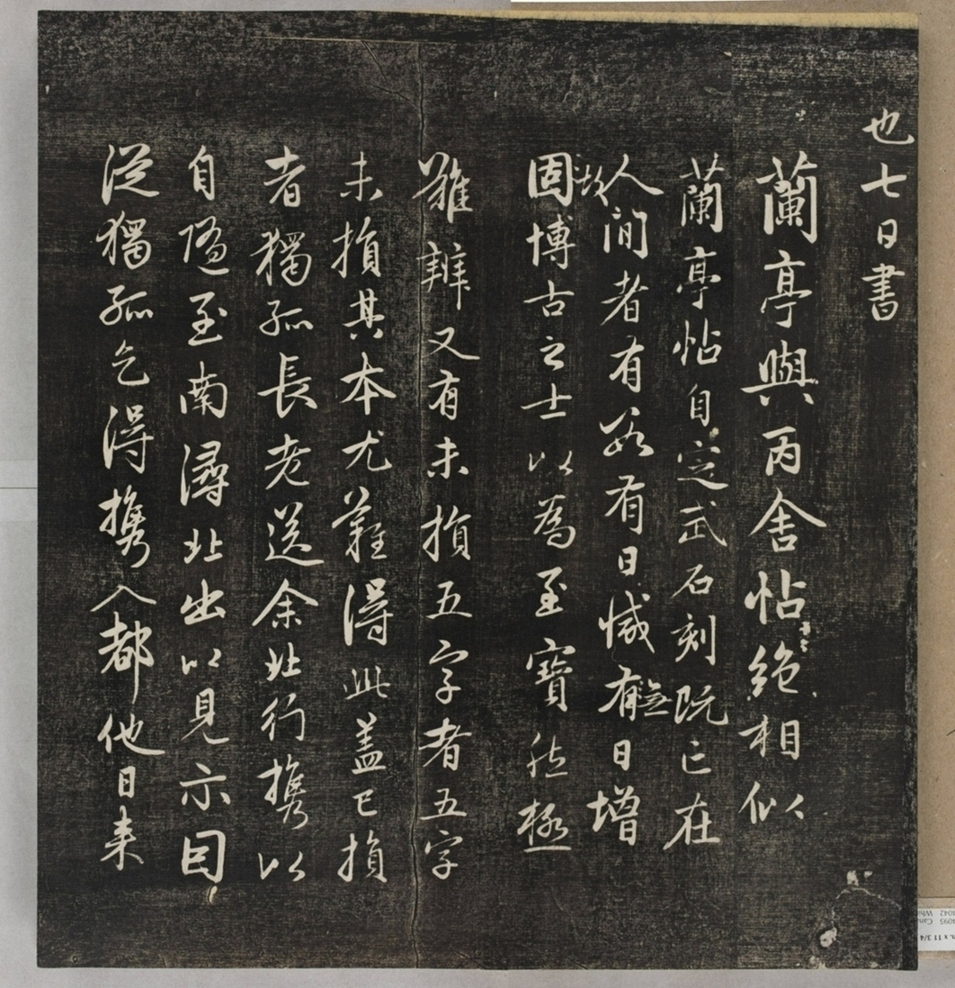 也七日書
蘭亭與丙舍帖絶相似
蘭亭帖自定武石刻既亡在
人間者有數有日減有無日增
故
固博古之士以為至寶然極
難辨又有未損五字者五字
未損其本尤難得此蓋已損
者獨孤長老送余北行攜以
自隨至南潯北出以見示因
從獨孤乞得攜入都他日來